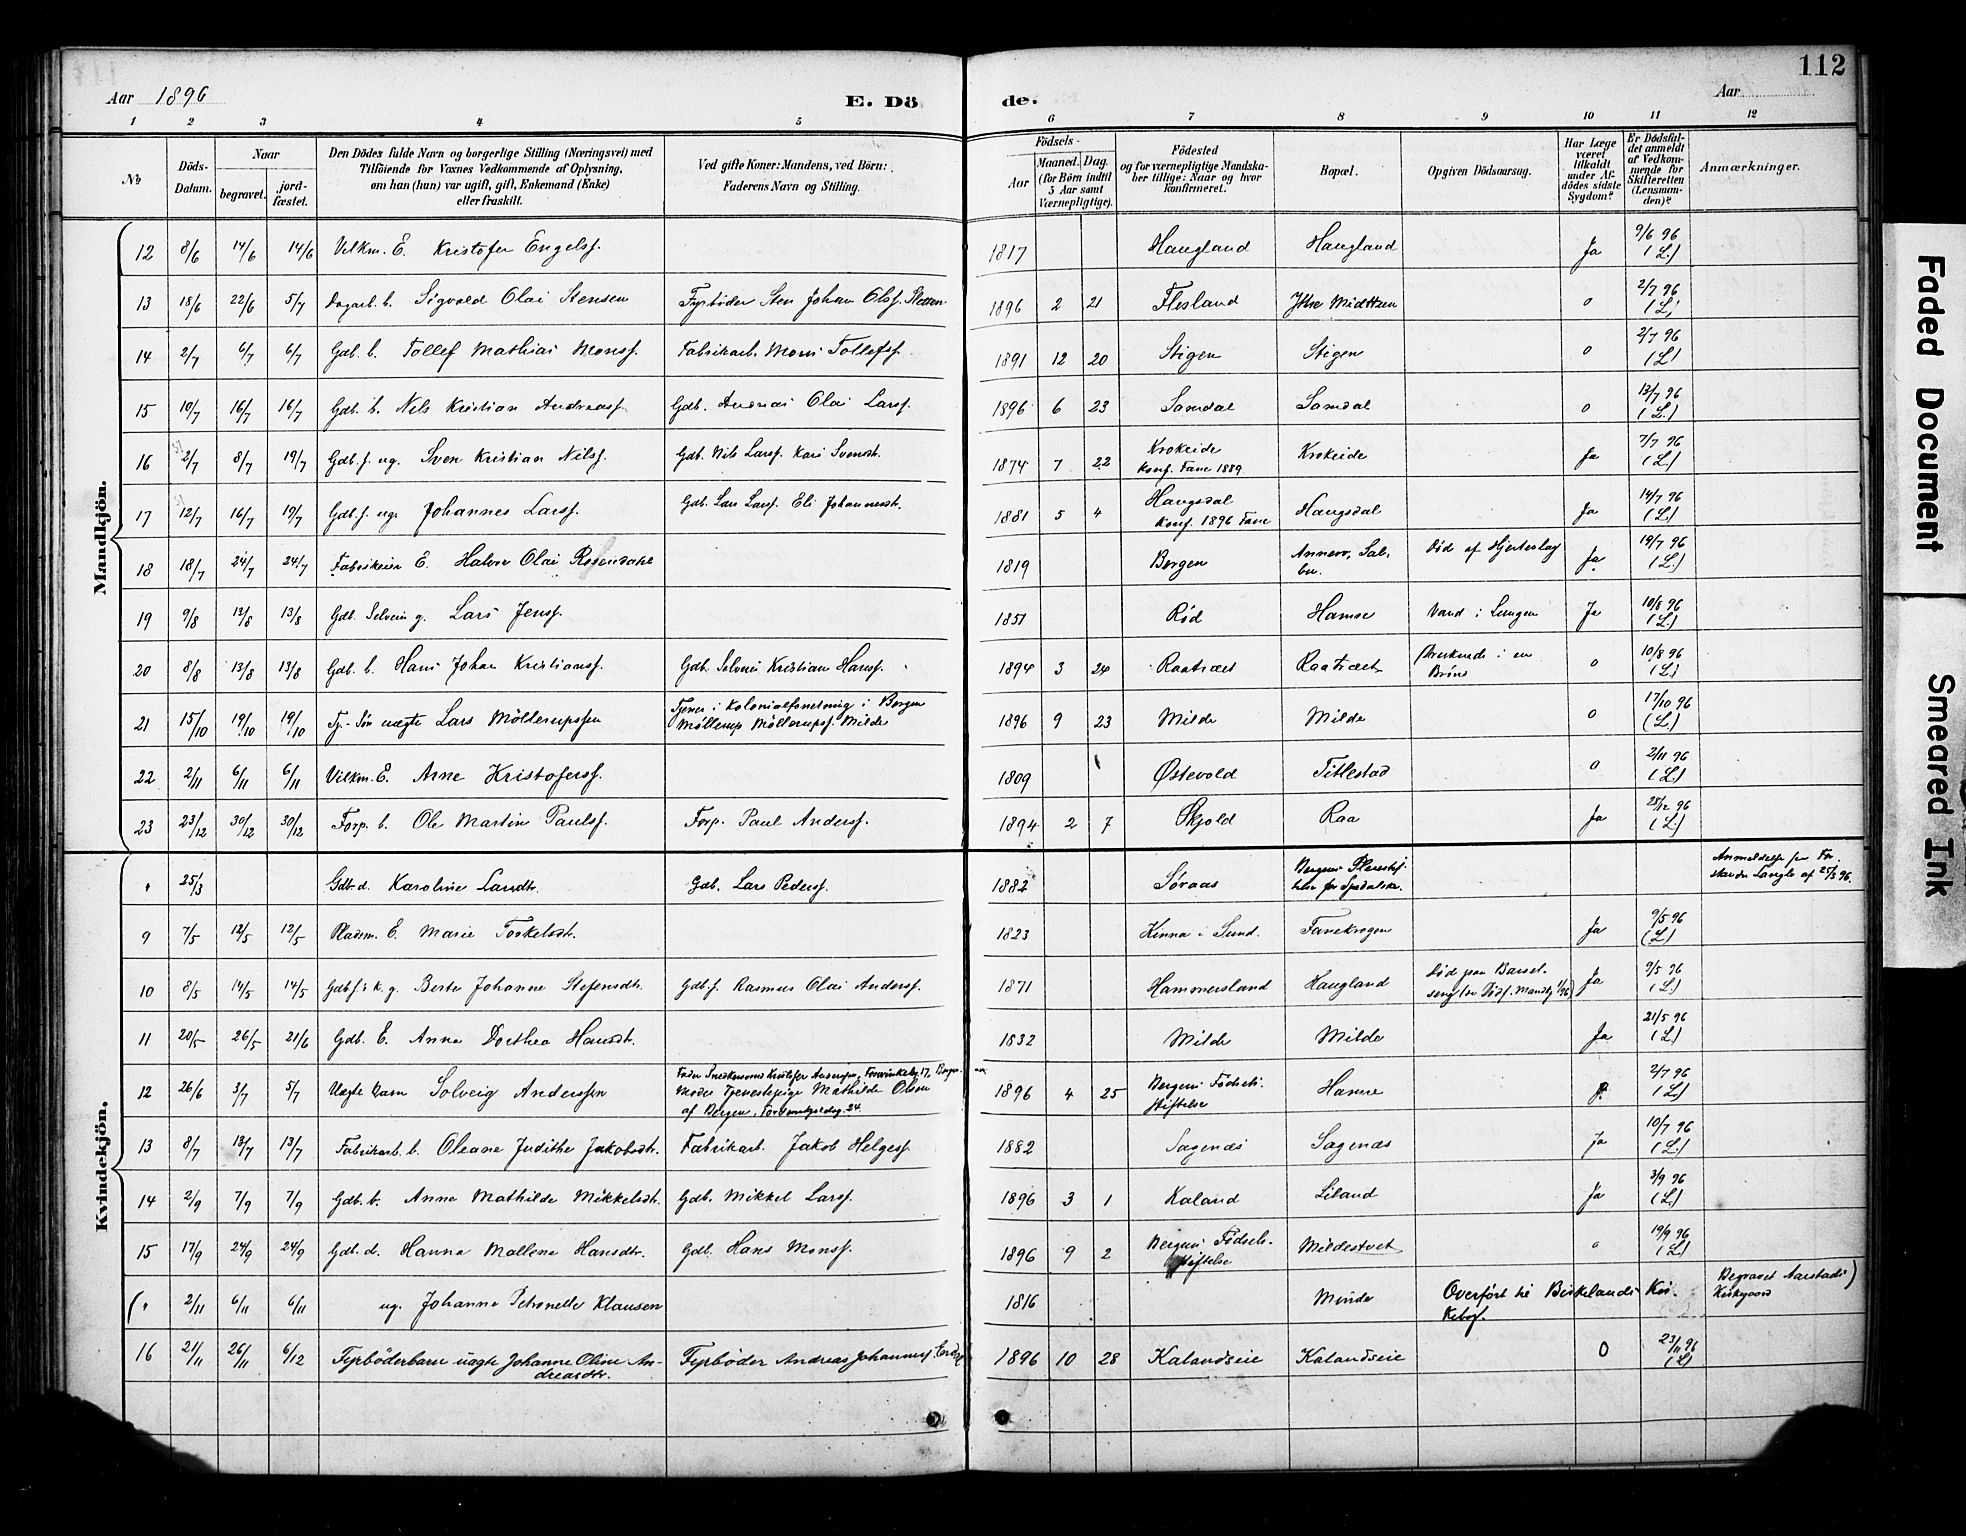 112
Aar 1896
E. Dö
de.
Aar
1 2 3 4 5 6 7 8 9 10 11 12
No
Döds-Datum.
Naar
begravet.
jordfæstet.
Den Dödes fulde Navn og borgerlige Stilling (Næringsvei) med
Tilföiende for Voxnes Vedkommende af Oplysning,
om han (hun) var ugift, gift, Enkemand (Enke)
eller fraskilt.
Ved gifte Koner: Mandens, ved Börn:
Faderens Navn og Stilling.
Födsels-
Aar
Maaned. Dag.
(for Börn indtil
5 Aar samt
Værnepligtige).
Födested
og for værnepligtige Mandska-
ber tillige: Naar og hvor
konfirmeret.
Bopæl.
Opgiven Dödsaarsag.
Har Læge
været
tilkaldt
under Af-
dödes sidste
Sygdom?
Er Dödsfal-
det anmeldt
af Vedkom-
mende for
Skifteretten
(Lensman-
den)?
Anmærkninger.
Mandkjön.
12 8/6 14/6 14/6 Vilkm. E. Kristofer Engelsf. 1817 Haugland Haugland Ja 9/6 96 (L.)
13 18/6 22/6 5/7 Dagarb. b. Sigvald Olai Stensen Fyrbøder Sten Johan Olsf. Sletten 1896 2 21 Flesland Ytre Midttun o 2/7 96 (L)
14 2/7 6/7 6/7 Gdb. b. Tollef Mathias Monsf. Fabrikarb. Mons Tollefsf. 1891 12 20 Stigen Stigen o 2/7 96 (L)
15 10/7 16/7 16/7 Gdb. b. Nils Kristian Andreasf. Gdb. Andreas Olai Larsf. 1896 6 23 Samdal Samdal o 13/7 96 (L.)
16 2/7 8/7 19/7 Gdb.f. ug. Sven Kristian Nilsf. Gdb. Nils Larsf. Kari Svensdt. 1874 7 22 Krokeide Konf. Fane 1889 Krokeide Ja 7/7 96 (L.)
17 12/7 16/7 19/7 Gdb.f. ug. Johannes Larsf. Gdb. Lars Larsf. Eli Johannesdt. 1881 5 4 Haugsdal Konf. 1896 Fane Haugsdal Ja 14/7 96 (L.)
18 18/7 24/7 24/7 Fabrikeier E. Halvor Olai Rosendahl 1819 Bergen Død af Hjerteslag Ja 19/7 96 (L.)
19 9/8 13/8 13/8 Gdb. Selveier g. Lars Jensf. 1851 Rød Hamre Vand i Lungen Ja 10/8 96 (L.)
20 8/8 13/8 13/8 Gdb. b. Hans Johan Kristiansf. Gdb. Selveier Kristian Hansf. 1894 3 24 Raatræet Raatræet Druknede i en Brønd o 10/8 96 (L)
21 15/10 19/10 19/10 Tj.-Søn uægte Lars Möllerupssen Tjener i Kolonialforretning i Bergen Møllerup Møllerupsf. Milde 1896 9 23 Milde Milde o 17/10 96 (L.)
22 2/11 6/11 6/11 Vilkm. E. Arne Kristofersf. 1809 Østevold Titlestad o 2/11 96 (L.)
23 23/12 30/12 30/12 Forp. b. Ole Martin Paulsf. Forp. Paul Andersf. 1894 2 7 Skjold Raa Ja 28/12 96 (L.)
Kvindekjön.
" 25/3 Gdb. d. Karoline Larsdtr. Gdb. Lars Pedersf. 1882 Søraas Bergens Pleiestiftelse for Spedalske. Anmeldelse fra
af 27/3 96.
9 7/5 12/5 12/5 Pladsm. E. Marie Torkelsdt. 1823 Kinna i Sund. Fanekrogen Ja 9/5 96 (L)
10 8/5 14/5 14/5 Gdb.f's k. g. Berte Johanne Stefensdtr. Gdb.f. Rasmus Olai Andersf. 1871 Hammersland Haugland Død paa Barselseng Ja 9/5 96 (L.)
11 20/5 26/5 21/6 Gdb. E. Anna Dorthea Hansdt. 1832 Milde Milde Ja 21/5 96 (L)
12 26/6 3/7 5/7 Uægte Barn Solveig Andersen Fader Snedkersvend Kristofer Andersen, 17, Bergen. Moder Tjenestepige Mathilde Olsen af Bergen, 24. 1896 4 25 Bergens Fødselsstiftelse Hamre 2/7 96 (L.)
13 8/7 13/7 13/7 Fabrikarb. b. Oleane Judithe Jakobsdt. Fabrikarb. Jakob Helgesf. 1882 Sagenæs Sagenæs Ja 10/7 96 (L.)
14 2/9 7/9 7/9 Gdb. b. Anna Mathilde Mikkelsdt. Gdb. Mikkel Larsf. 1896 3 1 Kaland Liland Ja 3/9 96 (L.)
15 17/9 24/9 24/9 Gdb. d. Hanna Mallene Hansdtr. Gdb. Hans Monsf. 1896 9 2 Bergens Fødselsstiftelse Mildestvet o 19/9 96 (L)
(" 2/11 6/11 6/11 ug. Johanna Petronelle Klausen 1816 Minde Overført til Birkelands Kirkebog. Begravet Aarstads Kirkegaard)
16 21/11 26/11 6/12 Fyrbøderbarn uægte Johanne Oline Andreasdtr. Fyrbøder Andreas Johannesf. 1896 10 28 Kalandseie Kalandseie O 23/11 96 (L)
Faded Document
Smeared Ink